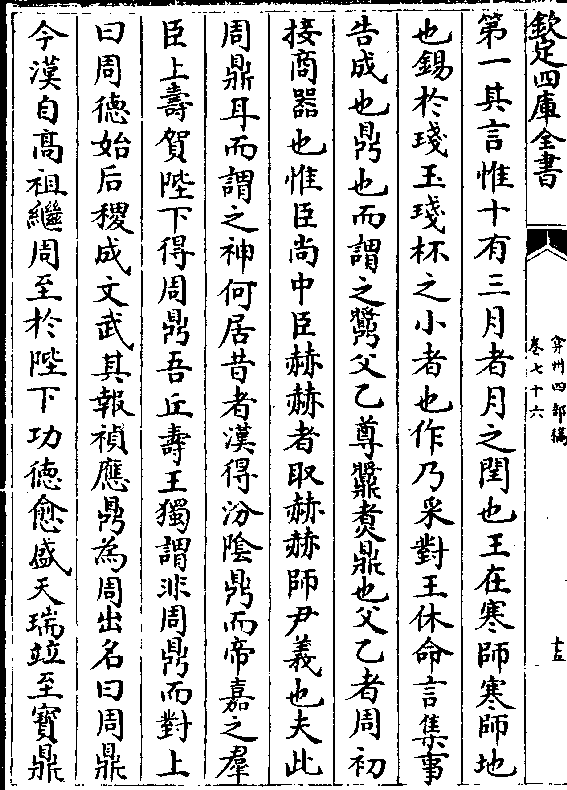 欽定四庫全書
弇州四部稿
卷七十六
十五
第一其言惟十有三月者月之閏也王在寒師寒師地
也錫於琖玉琖杯之小者也作乃采對王休命言集事
告成也鼎也而謂之鷩父乙尊鼒煑鼎也父乙者周初
接商器也惟臣尚中臣赫赫者取赫赫師尹義也夫此
周鼎耳而謂之神何居昔者漢得汾陰鼎而帝嘉之羣
臣上壽賀陛下得周鼎吾丘壽王獨謂非周鼎而對上
曰周德始后稷成文武其報禎應鼎為周出名曰周鼎
今漢自髙祖繼周至於陛下功德愈盛天瑞竝至寳鼎